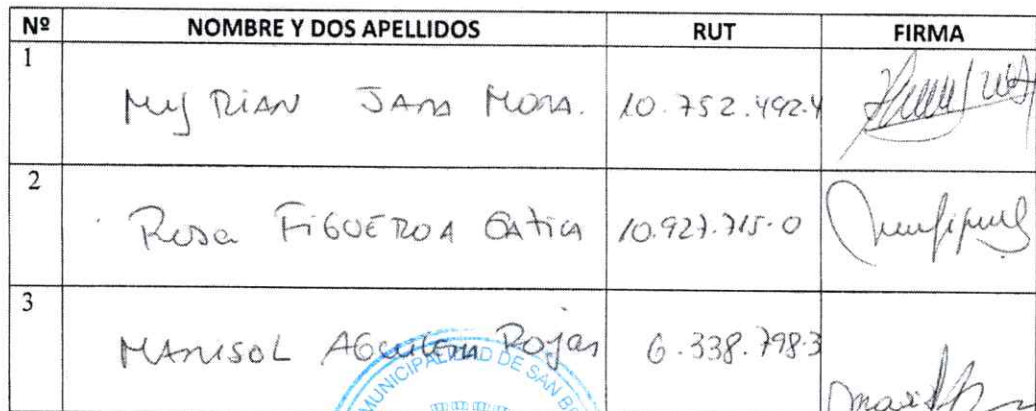 Nº NOMBRE Y DOS APELLIDOS RUT FIRMA
1 Myriam Jara Mora. 10.752.492.4
2 Rosa Figueroa Gatica 10.927.715-0
3 Marisol Aguilera Rojas 6.338.798.3
MUNICIPALIDAD DE SAN BE